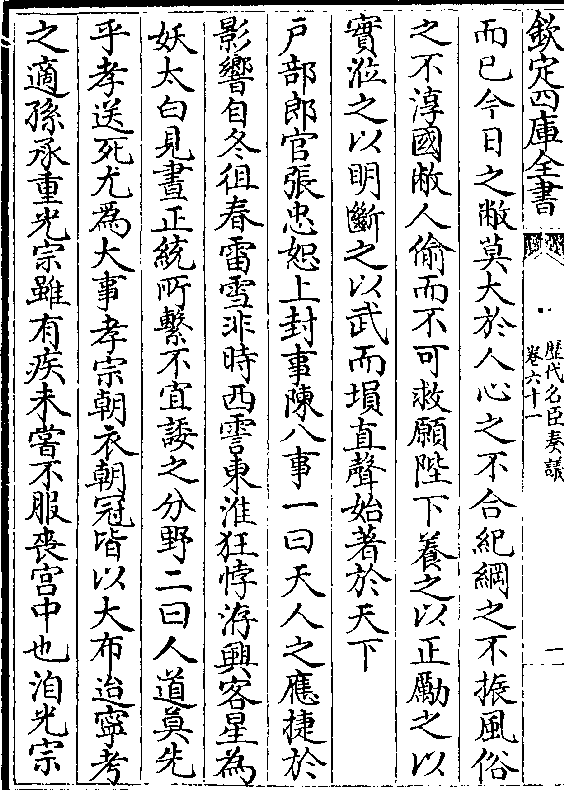 欽定四庫全書
歴代名臣奏議
卷六十一
一
而已今日之敝莫大於人心之不合紀綱之不振風俗
之不淳國敝人偷而不可救願陛下養之以正勵之以
實涖之以明斷之以武而塤直聲始著於天下
戶部郎官張忠恕上封事陳八事一曰天人之應捷於
影響自冬徂春雷雪非時西霅東淮狂悖洊興客星為
妖太白見晝正統所繫不宜諉之分野二曰人道莫先
乎孝送死尤為大事孝宗朝衣朝冠皆以大布迨寧考
之適孫承重光宗雖有疾未嘗不服喪宫中也洎光宗